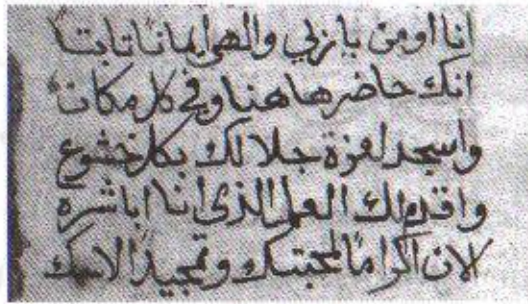 انا اومن بك ياربي والهي ايمانا ثابتا
انك حاضر هاهنا وفي كل مكان
واسجد لعزة جلالك بكل خشوع
واقدم لك العمل الذي انا اباشره
الان اكراما لمحبتك وتمجيدا لاسمك